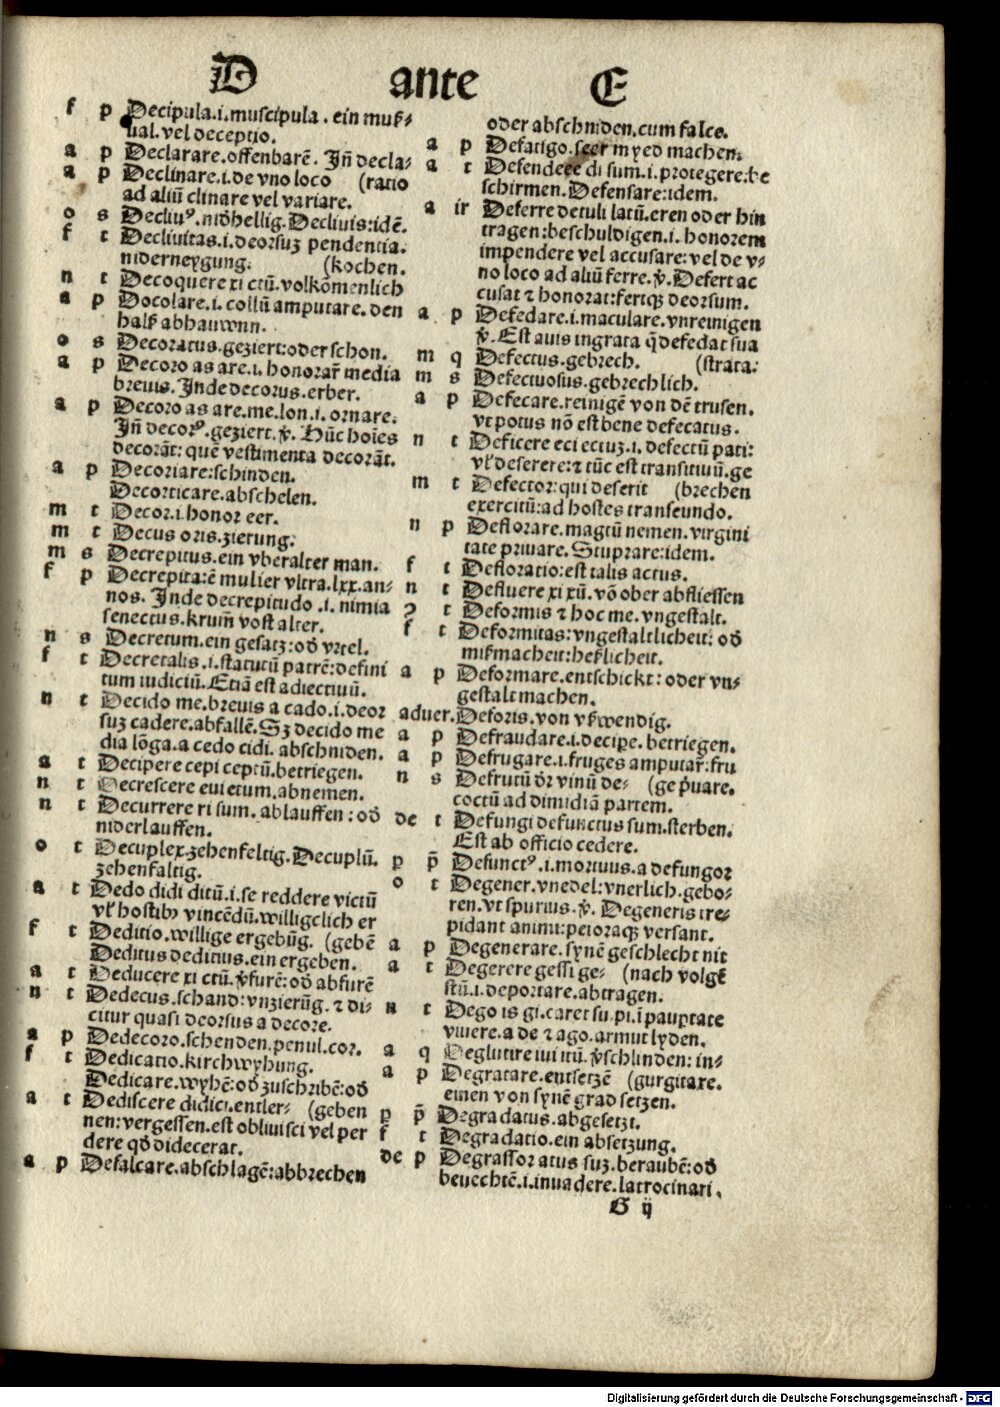 D ante E
f p Decipula.i.muscipula. ein muß⸗
ual.vel deceptio.
a p Declarare.offenbarē. Jñ decla⸗
a p Declinare.i.de vno loco (ratio
ad aliū clinare vel variare.
o s Decliuꝰ.nidhellig.Decliuis:idē.
f t Decliuitas.i.deorsuʒ pendentia.
niderneygung. (kochen.
n t Decoquere xi ctū.volkōmenlich
a p Docolare.i.collū amputare.den
halß abhauwnn.
o s Decoratus.geziert:oder schon.
a p Decoro as are.i.honorar̄ media
breuis.Jnde decorus.erber.
a p Decoro as are.me.lon.i.ornare.
Jñ decorꝰ.geziert.ꝟ. Hūc hoīes
decorāt:quē vestimenta decorāt.
a p Decoriare:schinden.
Decorticare.abschelen.
m t Decor.i.honor eer.
m t Decus oris.zierung.
m s Decrepitus.ein vberalter man.
f p Decrepita:ē mulier vltra.lxx.an⸗
nos. Jnde decrepitudo .i. nimia
senectus.krum̄ vost alter.
n s Decretum.ein gesatz:od̄ vrtel.
f t Decretalis.i.statutū patrē:defini
tum iudiciū.Etiā est adiectiuū.
n t Decido me.breuis a cado.i.deor
suʒ cadere.abfallē.Sʒ decido me
dia lōga.a cedo cidi. abschniden.
a t Decipere cepi ceptū.betriegen.
n t Decrescere eui etum.abnemen.
n t Decurrere ri sum. ablauffen:od̄
niderlauffen.
o t Decuplex.zehenfeltig.Decuplū.
zehenfaltig.
a t Dedo didi ditū.i.se reddere victū
vł hostibꝫ vincēdū.willigclich er
f t Deditio.willige ergebūg. (gebē
Deditus deditius.ein ergeben.
a t Deducere xi ctū.ꝟfurē:od̄ abfurē
n t Dedecus.schand:vnzierūg.⁊ di⸗
citur quasi deorsus a decore.
a p Dedecoro.schenden.penul.cor.
f t Dedicatio.kirchwyhung.
Dedicare.wyhē:od̄ zuschribē:od̄
a t Dediscere didici.entler⸗ (geben
nen:vergessen.est obliuisci vel per
dere qd̄ didecerat.
a p Defalcare.abschlagē:abbrechen
oder abschniden.cum falce.
a p Defatigo.seer myed machen.
a t Defendere di sum.i.protegere.be
schirmen.Defensare:idem.
a ir Deferre detuli latū.eren oder hin
tragen:beschuldigen.i. honorem
impendere vel accusare:vel de v⸗
no loco ad aliū ferre.ꝟ.Defert ac
cusat ⁊ honorat:fertqꝫ deorsum.
a p Defedare.i.maculare.vnreinigen
ꝟ.Est auis ingrata q̄ defedat sua
m q Defectus.gebrech. (strata.
m s Defectuosus.gebrechlich.
a p Defecare.reinigē von dē trusen.
vt potus nō est bene defecatus.
n t Deficere eci ectuʒ.i.defectū pati:
vł deserere:⁊ tūc est transitiuū.ge
m t Defector:qui deserit (brechen
exercitū:ad hostes transeundo.
n p Deflorare.magtū nemen.virgini
tate priuare.Stuprare:idem.
f t Defloratio:est talis actus.
n t Defluere xi xū.vō ober abfliessen
ꝯ t Deformis ⁊ hoc me.vngestalt.
f t Deformitas:vngestaltlicheit: od̄
mißmacheit:heßlicheit.
a p Deformare.entschickt:oder vn⸗
gestalt machen.
aduer.Deforis.von vßwendig.
a p Defraudare.i.decipe.betriegen.
a p Defrugare.i.fruges amputar̄:fru
n s Defrutū dr̄ vinū de⸗ (ge p̄uare.
coctū ad dimidiā partem.
de t Defungi defunctus sum.sterben.
Est ab officio cedere.
p p̄ Defunctꝰ.i.mortuus.a defungor
o t Degener.vnedel:vnerlich.gebo⸗
ren.vt spurius.ꝟ. Degeneris tre⸗
pidant animi:peioraqꝫ versant.
a p Degenerare.synē geschlecht nit
a t Degerere gessi ge⸗ (nach volgē
stū.i.deportare.abtragen.
n t Dego is gi.caret su.pi.ī paupertate
viuere.a de ⁊ ago.armut lyden.
a q Deglutire iui itū.ꝟschlinden:in⸗
a p Degratare.entsetzē (gurgitare.
einen von synē grad setzen.
p p̄ Degradatus.abgesetzt.
f t Degradatio.ein absetzung.
de p Degrassor atus suʒ.beraubē:od̄
beuechtē.i.inuadere.latrocinari.
G ij
Digitalisierung gefördert durch die Deutsche Forschungsgemeinschaft - DFG